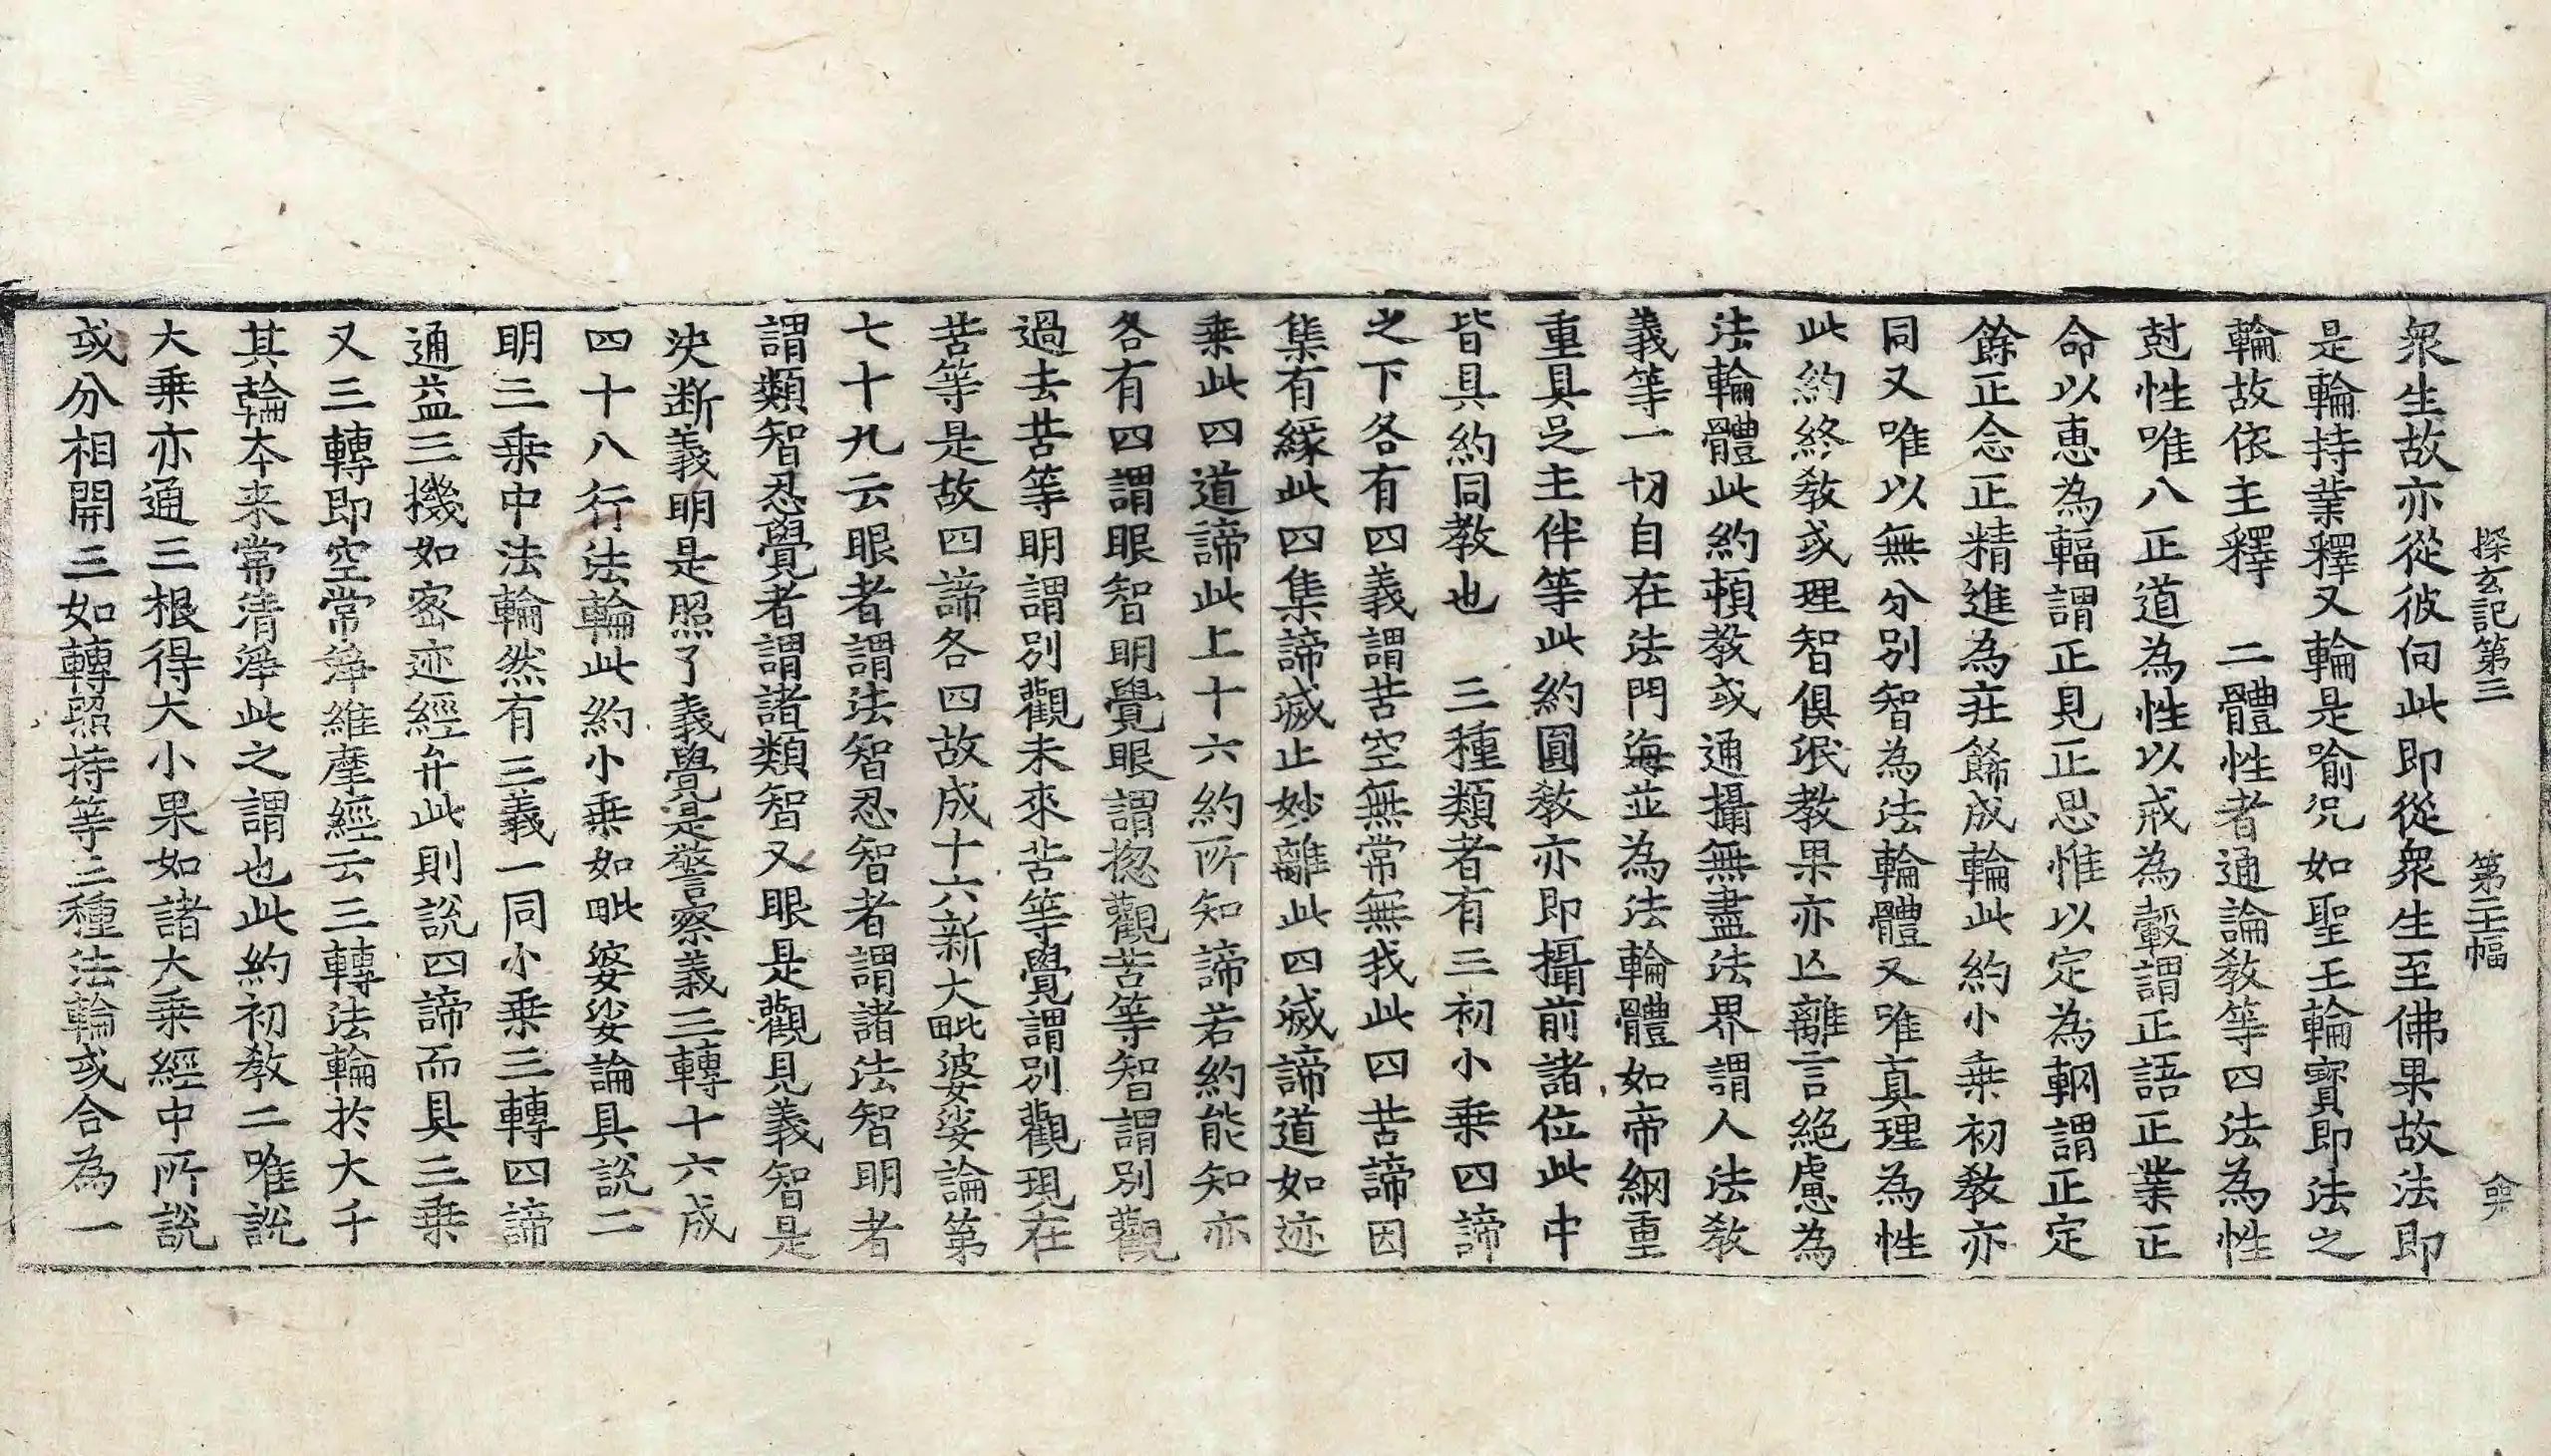 探玄記第三 第二十二幅 龠
衆生故亦從彼向此即從衆生至佛果故法即
是輪持業釋又輪是喻况如聖王輪寳即法之
輪故依主釋 二體性者通論教等四法為性
尅性唯八正道為性以戒為轂謂正語正業正
命以恵為輻謂正見正思惟以定為輞謂正定
餘正念正精進為莊餙成輪此約小乗初教亦
同又唯以無分別智為法輪體又唯真理為性
此約終教或理智俱泯教果亦亡離言絶慮為
法輪體此約頓教或通攝無盡法界謂人法教
義等一切自在法門海並為法輪體如帝網重
重具足主伴等此約圓教亦即攝前諸位此中
皆具約同教也 三種類者有三初小乗四諦
之下各有四義謂苦空無常無我此四苦諦因
集有緣此四集諦滅止妙離此四滅諦道如迹
乗此四道諦此上十六約所知諦若約能知亦
各有四謂眼智明覺眼謂揔觀苦等智謂別觀
過去苦等明謂別觀未來苦等覺謂別觀現在
苦等是故四諦各四故成十六新大毗婆娑論第
七十九云眼者謂法智忍智者謂諸法智明者
謂類智忍覺者謂諸類智又眼是觀見義智是
決断義明是照了義覺是警察義三轉十六成
四十八行法輪此約小乗如毗婆娑論具說二
明三乗中法輪然有三義一同小乗三轉四諦
通益三機如密迹經弁此則說四諦而具三乗
又三轉即空常淨維摩經云三轉法輪於大千
其輪本来常清淨此之謂也此約初教二唯說
大乗亦通三根得大小果如諸大乗經中所說
或分相開三如轉照持等三種法輪或合為一